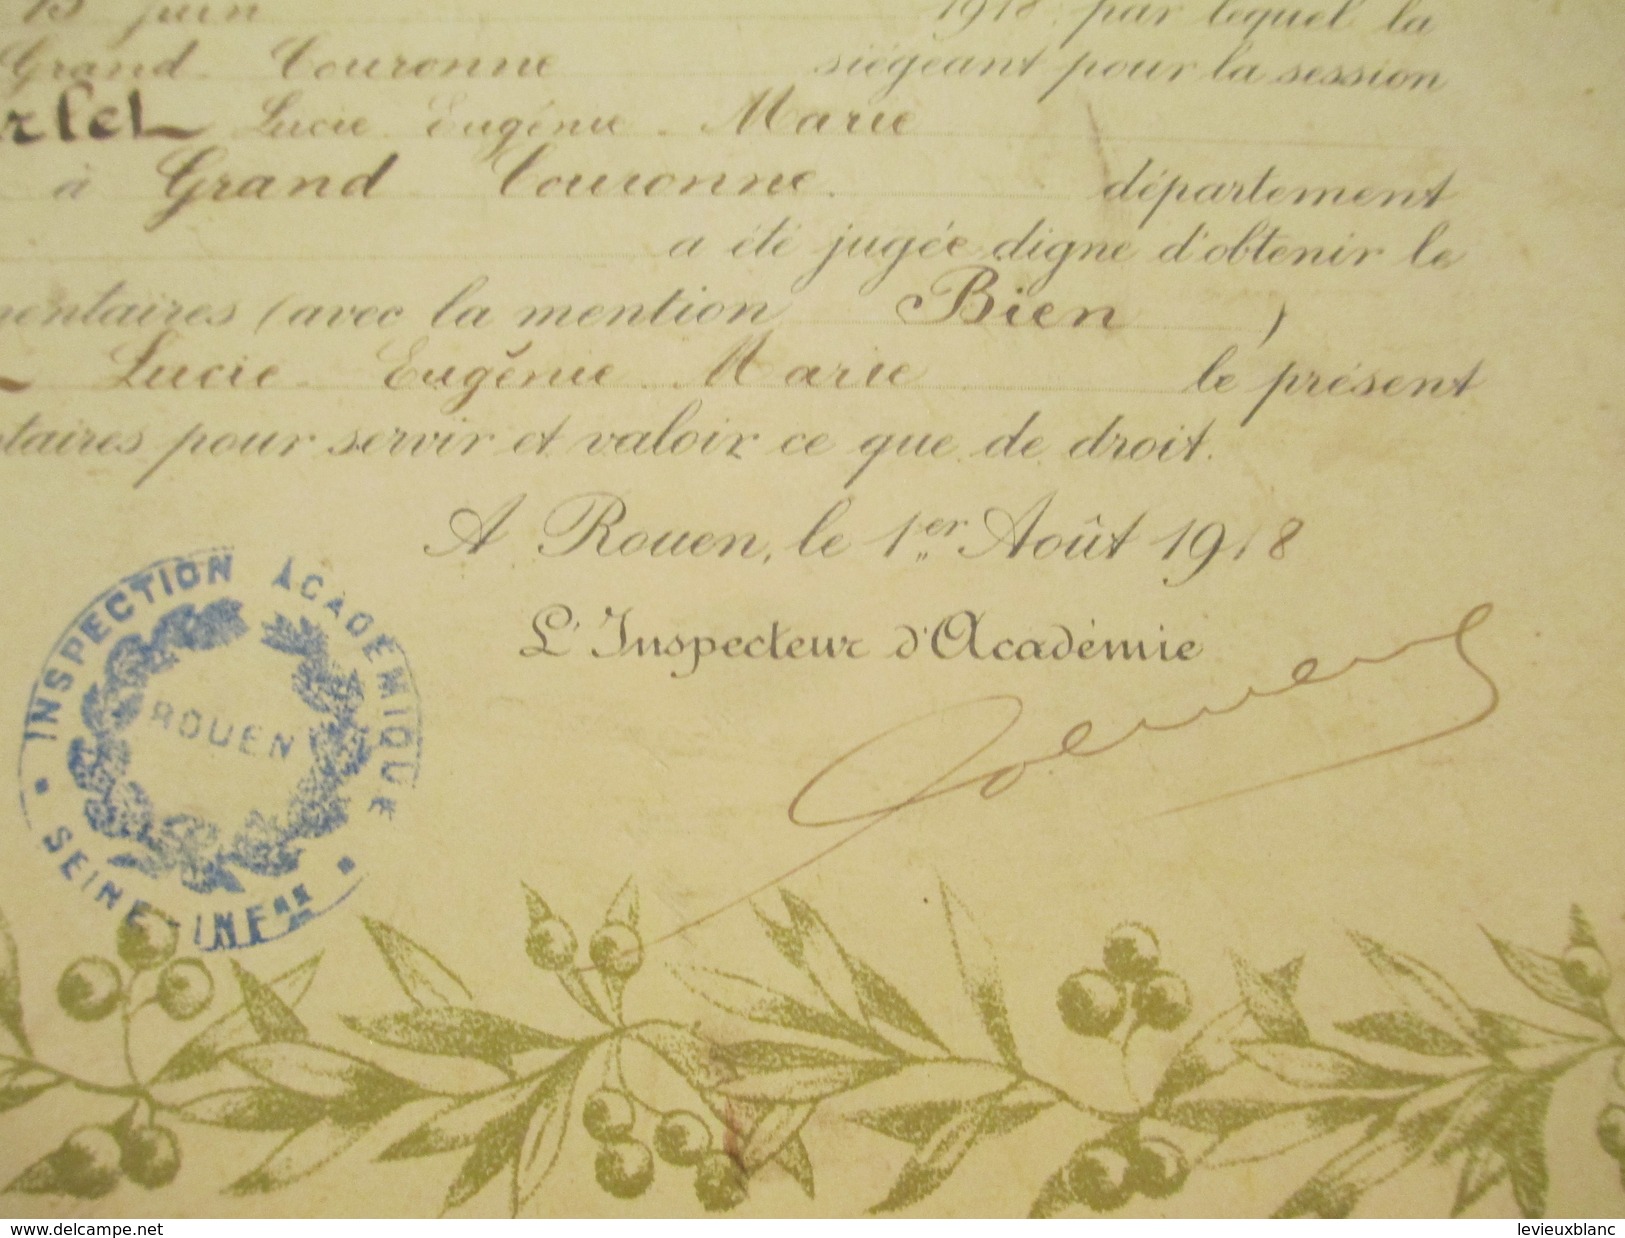 15 juin 1918 par lequel la
Grand Couronne siégeant pour la session
Lucie Eugénie Marie
à Grand Couronne département
a été jugée digne d'obtenir le
mentaires (avec la mention Bien )
Lucie Eugénie Marie le présent
ntaires pour servir et valoir ce que de droit.
A Rouen, le 1er Août 1918
L'Inspecteur d'Académie
INSPECTION ACADÉMIQUE
ROUEN
SEINE-INFRE
www.delcampe.net
levieuxblanc